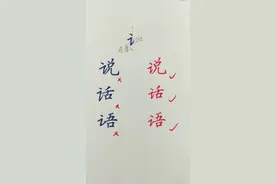 说 说
话 话
语 语